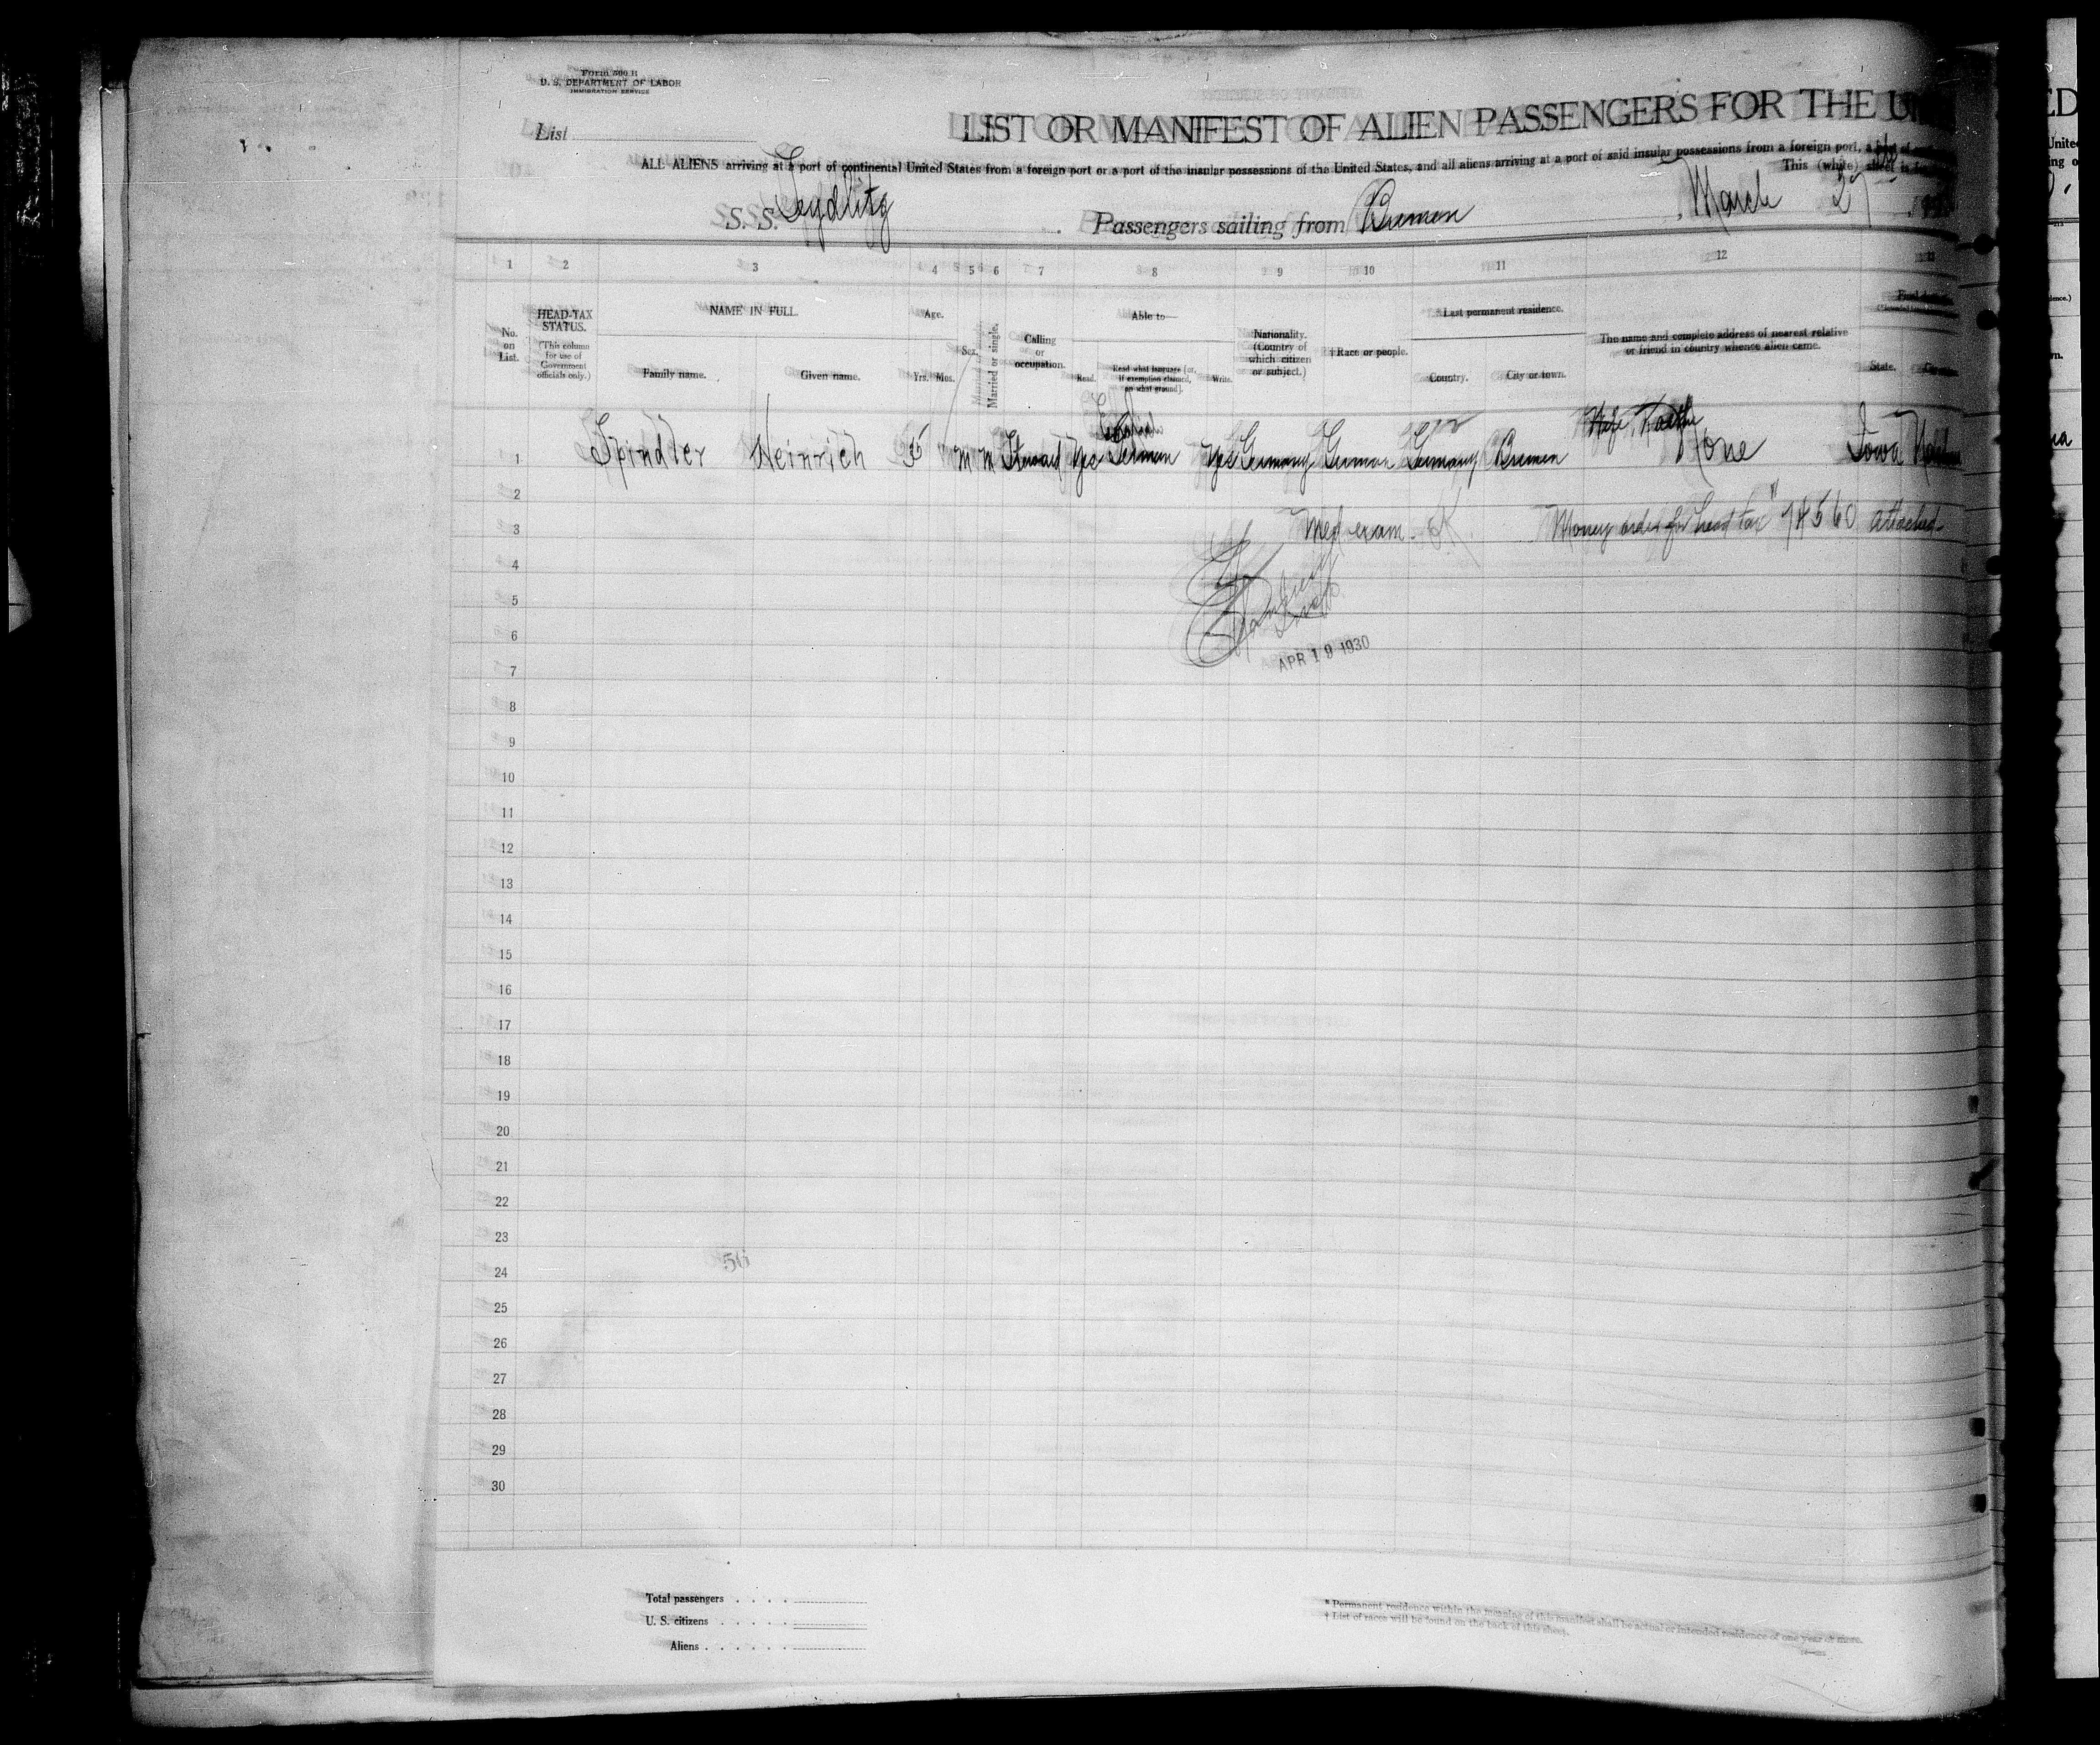 Form 500 B
U. S. DEPARTMENT OF LABOR
IMMIGRATION SERVICE
List
LIST OR MANIFEST OF ALIEN PASSENGERS FOR THE
ALL ALIENS arriving at a port of continental United States from a foreign port or a port of the insular possessions of the United States, and all aliens arriving at a port of said insular possessions from a foreign port, a
This (white) sheet is
S. S. Seydlitz Passengers sailing from Bremen, March 27
1 2 3 4 5 6 7 8 9 10 11 12 13
No. on List.
HEAD-TAX STATUS.
(This column for use of Government officials only.)
NAME IN FULL.
Family name. Given name.
Age.
Yrs. Mos.
Sex.
Married or single.
Calling or occupation.
Able to—
Read. Read what language (or, if exemption claimed, on what ground). Write.
Nationality. (Country of which citizen or subject.)
† Race or people.
* Last permanent residence.
Country. City or town.
The name and complete address of nearest relative or friend in country whence alien came.
State.
English
Wife
1 Spindler Heinrich M M Steward Yes German Yes Germany German Germany Bremen None Iowa
2
3 Med exam. Money order for head tax 74560 Attached
4
5
6
APR 19 1930
7
8
9
10
11
12
13
14
15
16
17
18
19
20
21
22
23
56
24
25
26
27
28
29
30
Total passengers
U. S. citizens
Aliens
* Permanent residence within the meaning of this manifest shall be actual or intended residence of one year or more.
† List of races will be found on the back of this sheet.